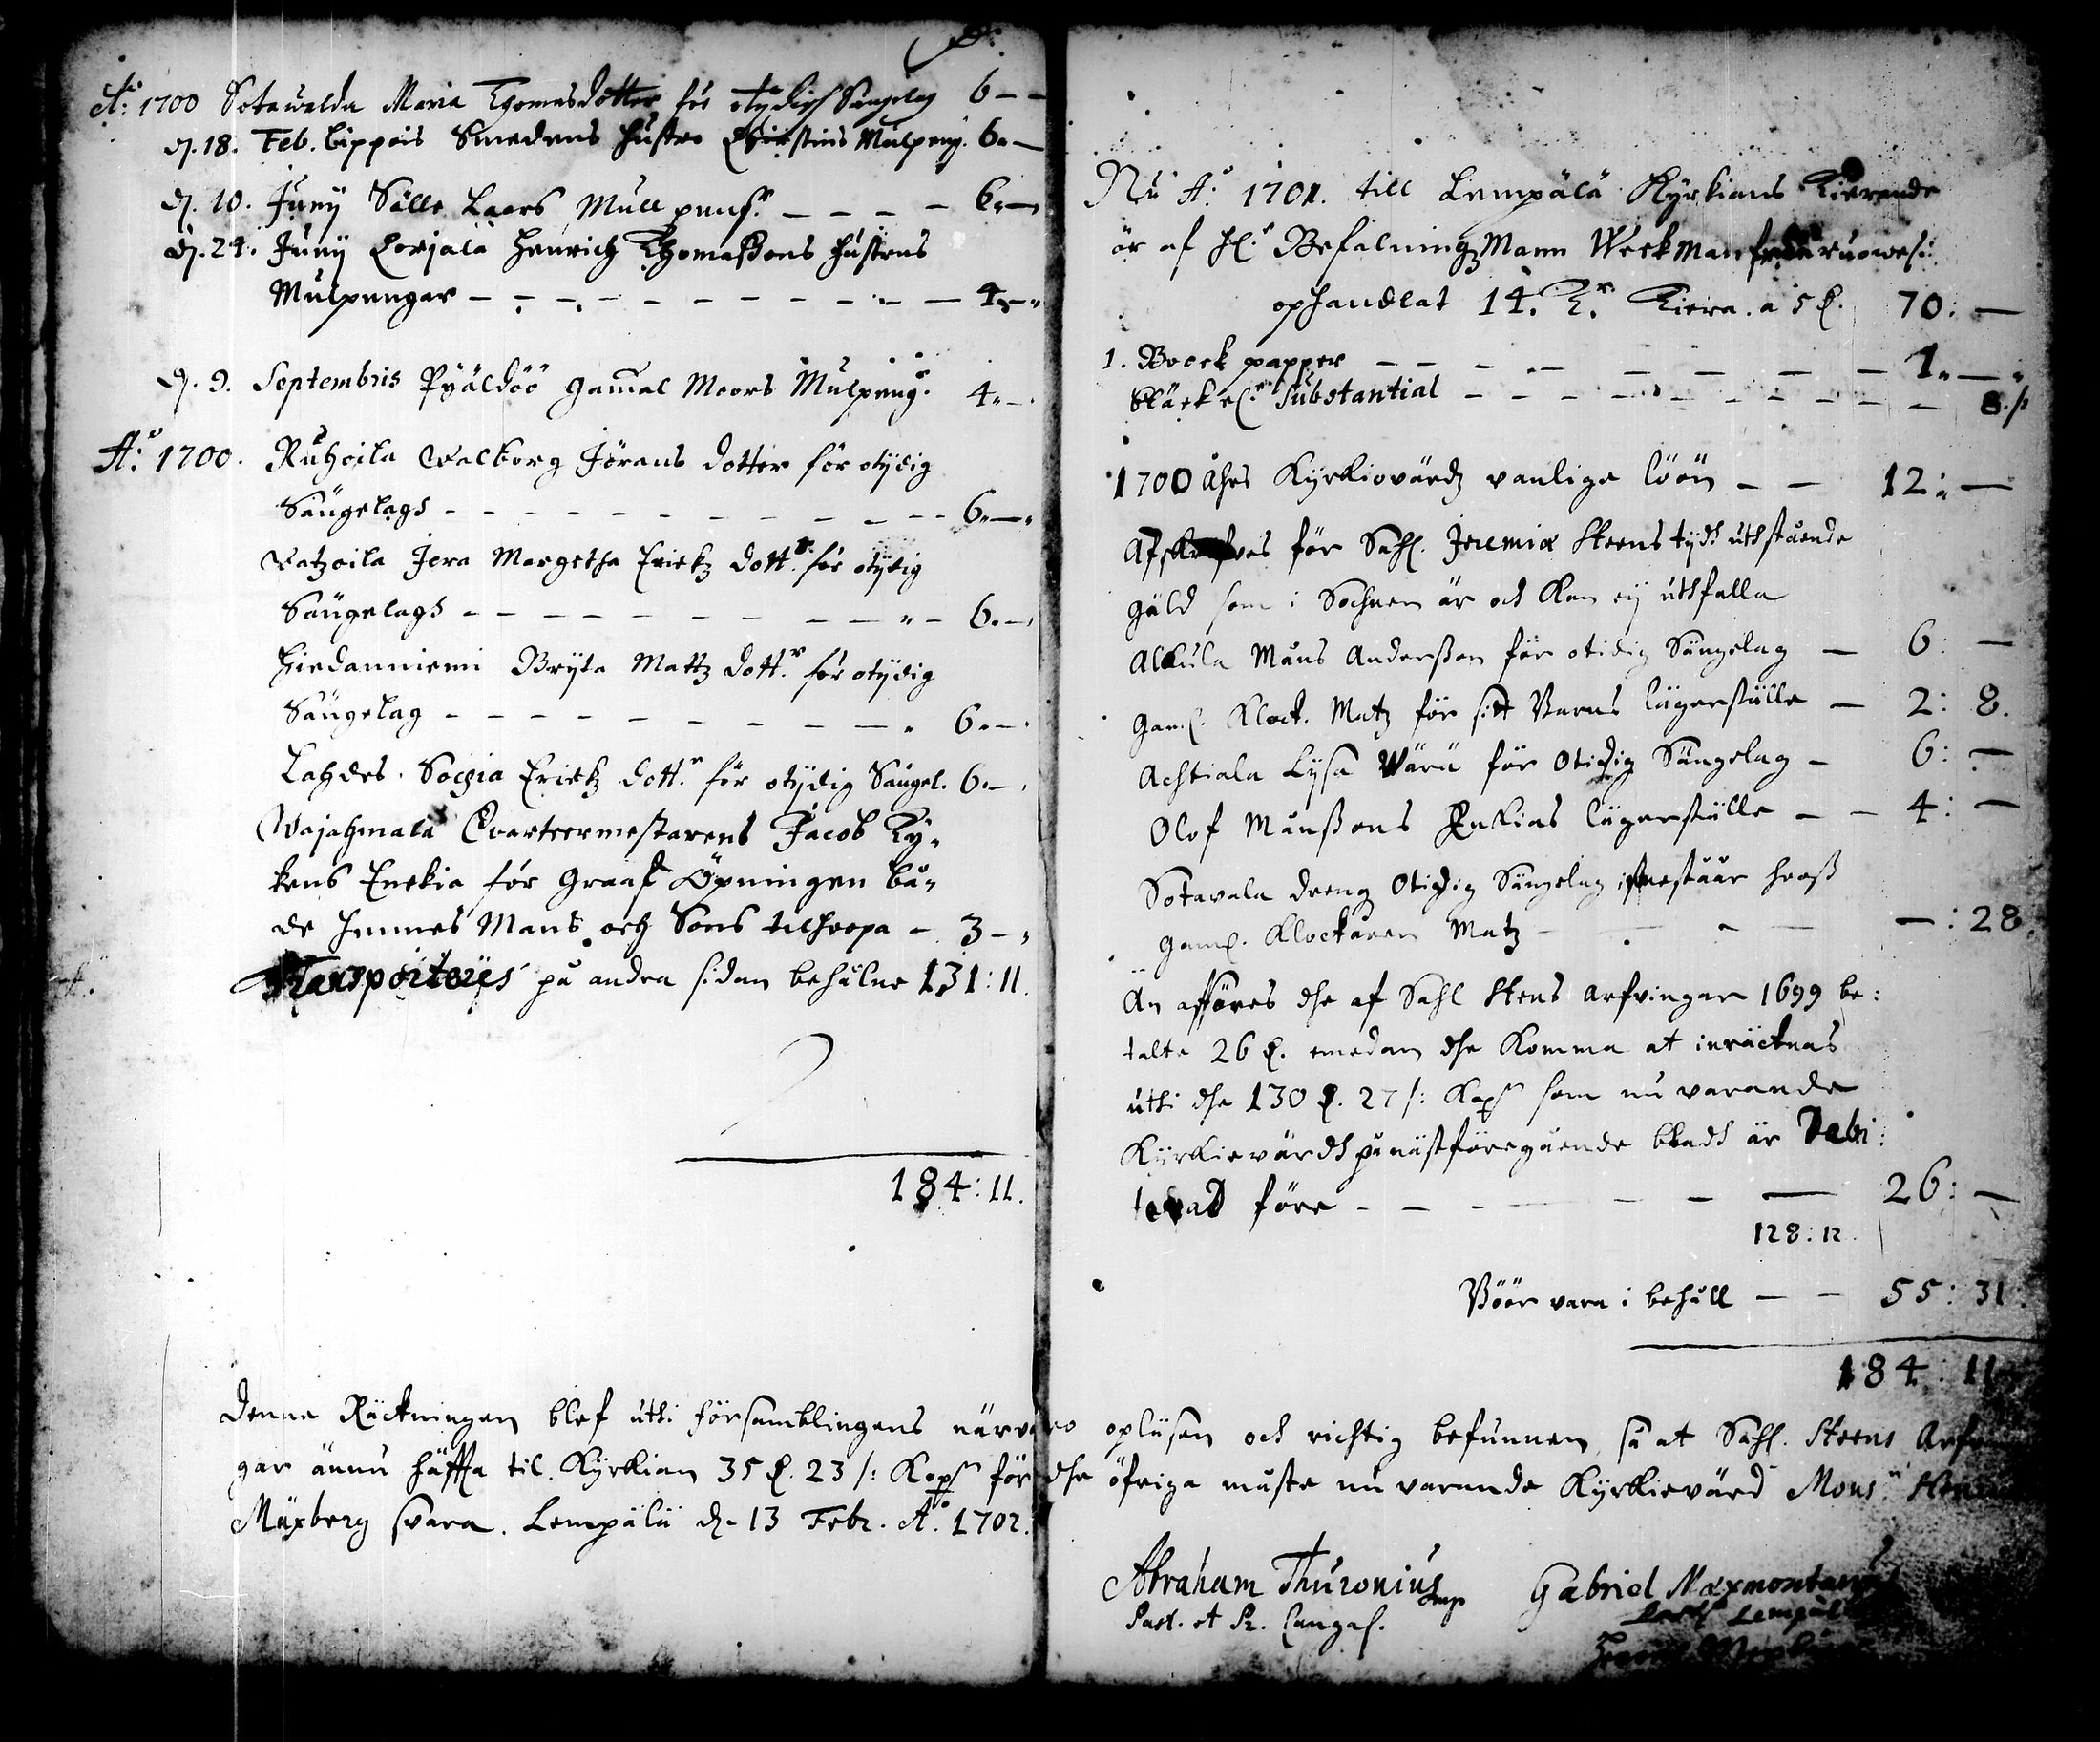 A:o 1700 Sotawalda Maria Thomasdotter för otydigt Sängelag 6 – –
d. 18. Feb. Lippois Smedens hustro Christins Mulpeng. 6 –
d. 10. Juny Sälle Lars Mull peng:r – – – – 6 –
d. 24. Juny Corjala Henrich Thomaßons hustrus
Mulpengar – – – – – – – – – – – 4 –
d. 9. Septembris Pyäldöö gamal Moors Mulpeng:r 4 –
A:o 1700. Ruhoila Walborg Jörans dotter för otydig
Sängelags – – – – – – – – – – – 6 –
Vatzoila Jera Margetha Erichz dott:r för otydig
Sängelags – – – – – – – – – – 6 –
Hiedanniemi Bryta Mattz dott:r för otydig
Sängelag – – – – – – – – – – 6 –
Lahdes. Sophia Erichz dott:r för otydig Sängel. 6 –
Wajahmala Quarteermestarens Jacob Ty-
kens Enckia för Graaf Öpningen bå-
de hennes Mans och Sons tilhoopa – 3 –
Transporteres på andra sidan behålne 131: 11.
184: 11.
Nu A:o 1701. till Lempälä Kyrkians Tierende
är af H:r BefalningzMann Weekman
ophandlat 14. T:r Tiera. a 5 D. 70: –
1. Boock papper – – – – – – – – 1 –
Bläck Substantial – – – – – – – – – 8 /:
1700 åhrs Kyrkiovärdz vanlige löön – – 12: –
Afskrifves för Sahl. Jeremiæ Steens tydh uthstående
gäld som i Sochnen är och Kan ey uthfalla
Alkula Måns Anderßon för otidig Sängelag – 6: –
Gaml. Klock. Matz för sitt Barns lägerställe – 2: 8.
Achtiala Lysa Wärä för Otidig Sängelag – 6: –
Olof Månßons Enkias lägerställe – – 4: –
Sotavala dreng Otidig Sängelag innestäär hooß
Gaml. Klockaren Matz – – – – – : 28.
Än afföres dhe af Sahl Stens Arfvingar 1699 be:
talte 26 D. emedan dhe Komma at inräcknas
uthi dhe 130 D. 27 /: Kop:r som nu varande
Kyrkievärdh på nästföregående bladh är Debi:
terad före – – – – – – – 26: –
128: 12.
Böör vara i behåll – – 55: 31.
184: 11
Denna Räckningen blef uthi församblingens närvaro opläsen och richtig befunnen, så at Sahl. Steens Arfvin
gar ännu häffta til Kyrkian 35 D. 23 /: Kop:r för dhe öfriga måste nu varande Kyrkievärd Mons:r
Mäxberg svara. Lempälä d. 13 Febr. A:o 1702.
Abraham Thuronius
Past. et Pr. Cangas.
Gabriel Mæxmontanus
Lempäl